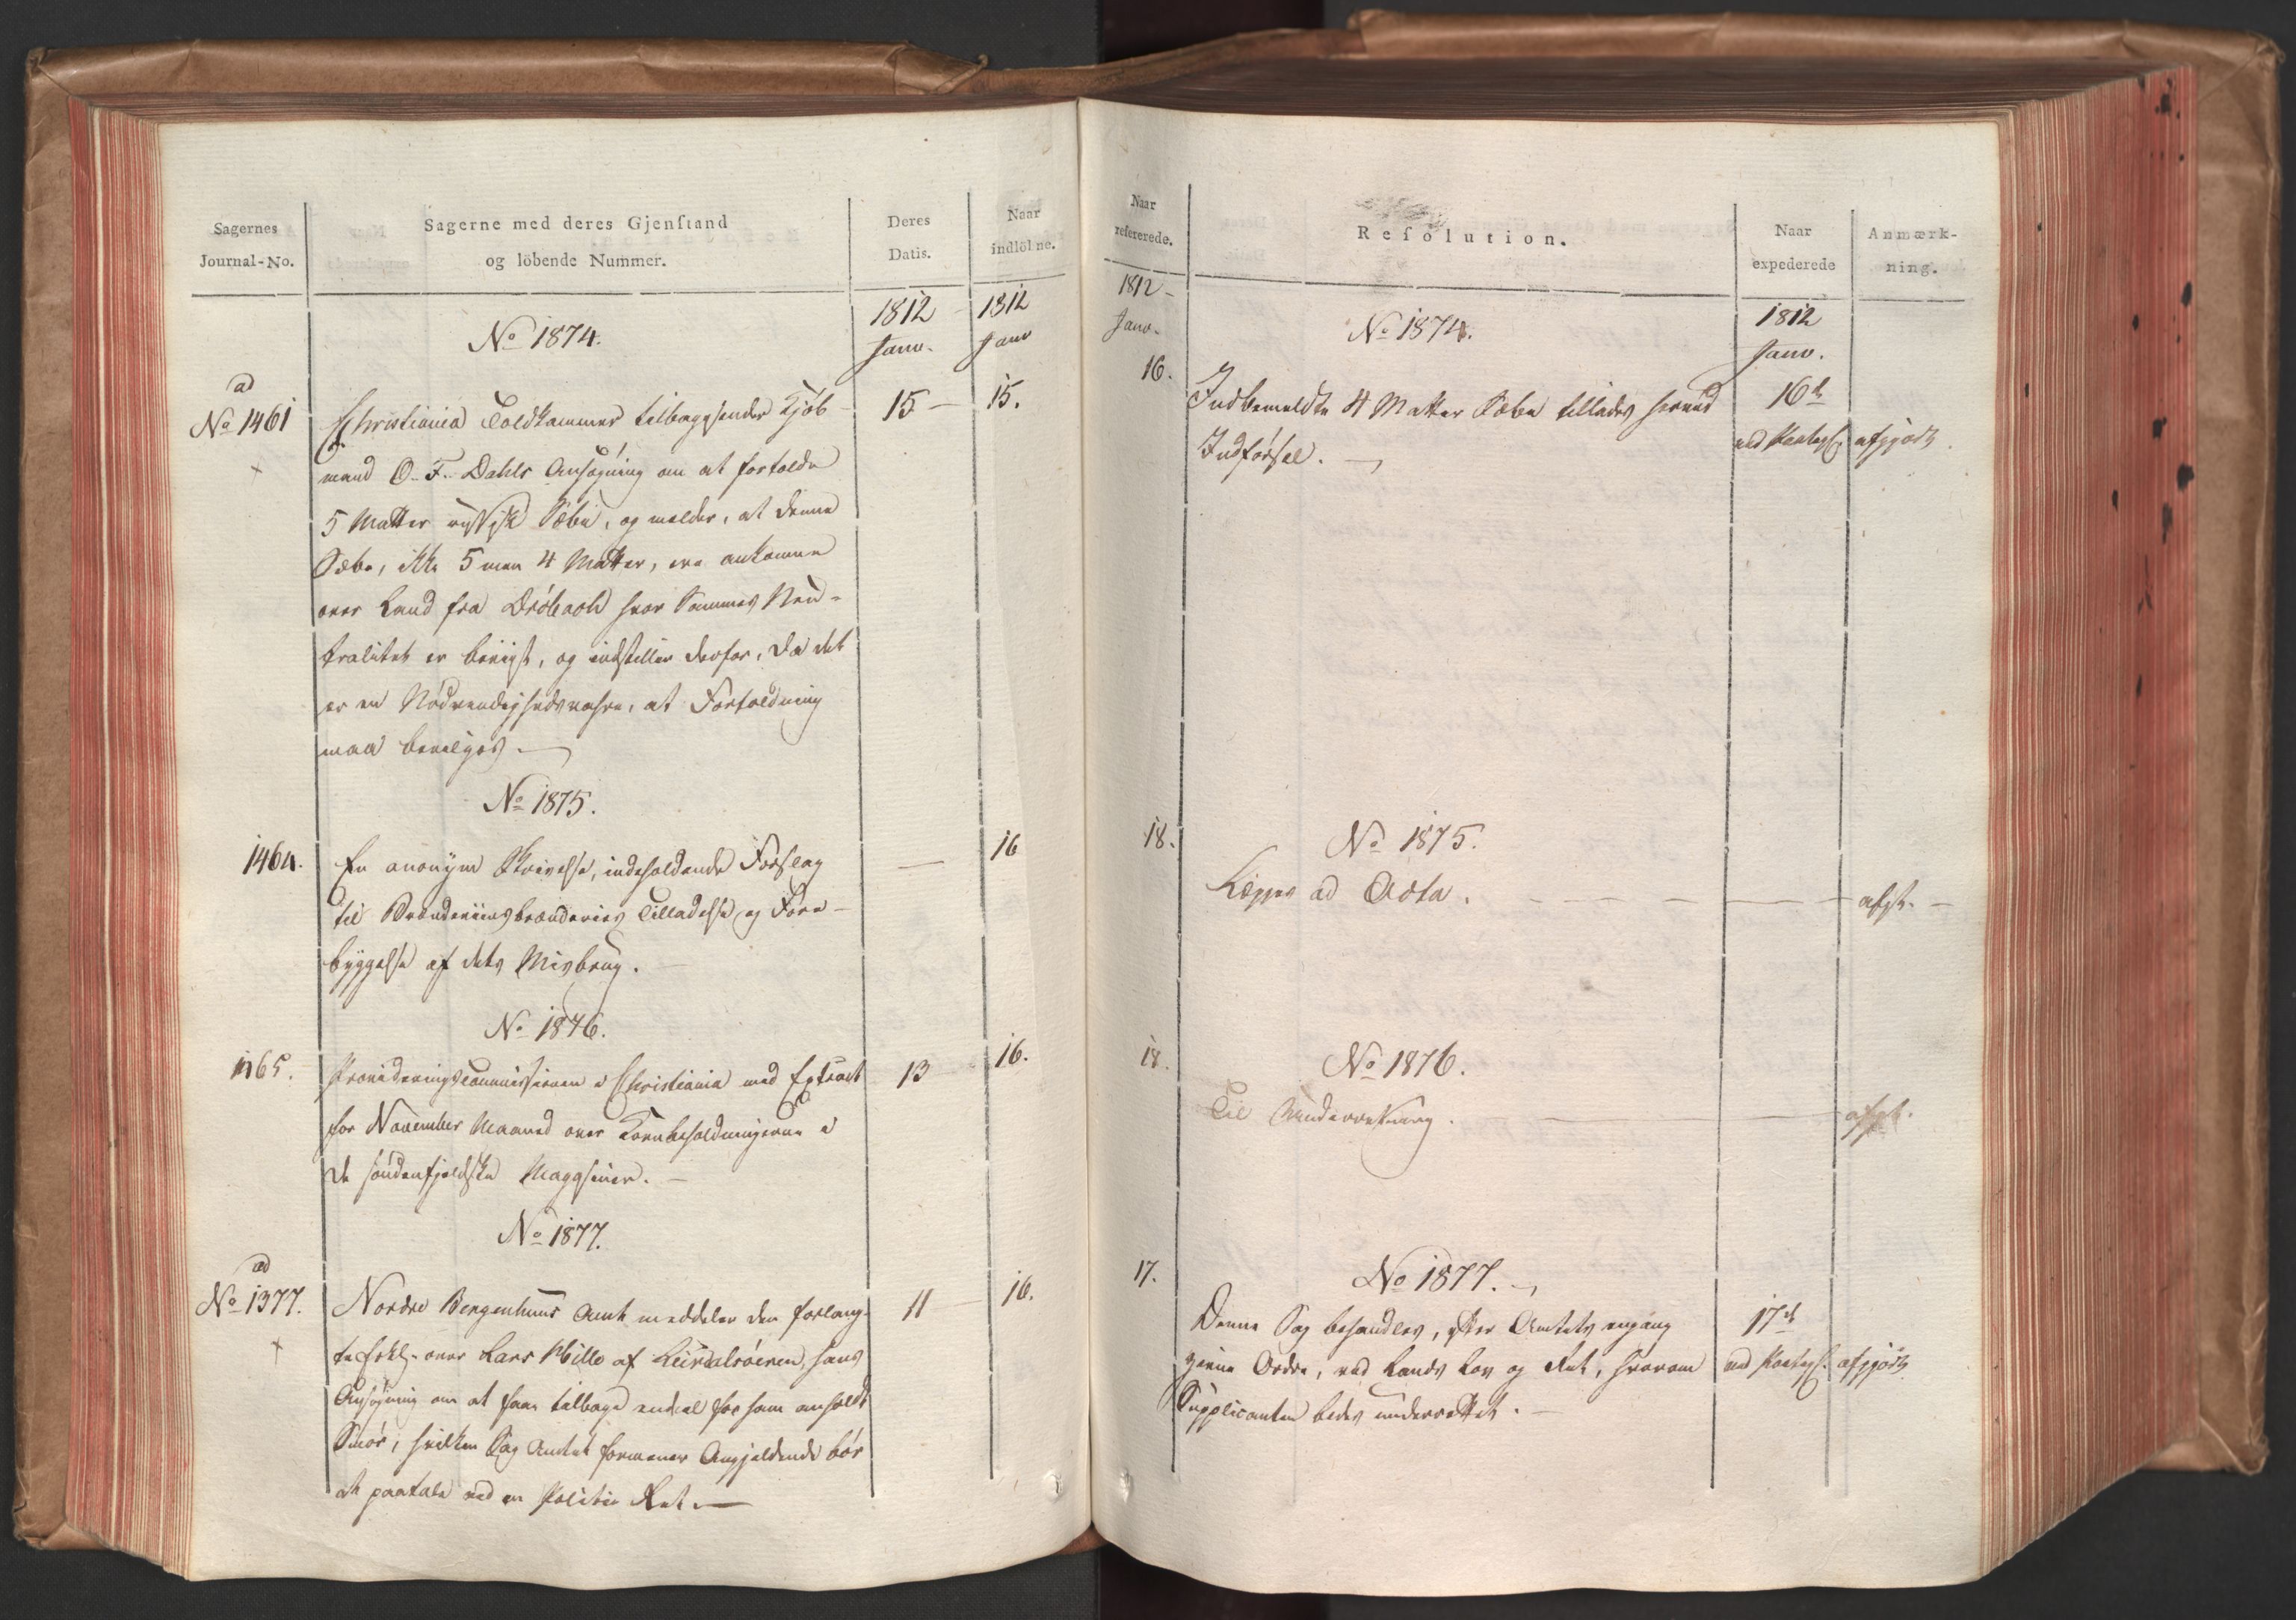 Sagernes
Journal-No.
Sagerne med deres Gjenstand
og löbende Nummer.
Deres
Datis.
Naar
indlöb ne.
1812
Janv.
1812
Janv
No 1874.
ad
No 1461
Christiania Toldkammer tilbagesender Kjöb-
mand O. F. Dahls Ansøgning om at fortolde
5 Matter russisk Sæbe, og melder, at denne
Sæbe, ikke 5 men 4 Matter, ere ankomne
over Land fra Dröbach hvor Sammes Neu-
tralitet er beviist, og indstiller derfor, da det
er en Nödvendighedsvahre, at Fortoldning
maa bevilges.
15 -
15.
No 1875.
1464.
En anonym Skrivelse, indeholdende Forslag
til Brændeviinsbrænderies Tilladelse og Fore-
byggelse af dets Misbrug.
16
No 1876.
1465.
Provideringscommissionen i Christiania med Extract
for November Maaned over Kornbeholdningerne i
de söndenfjeldske Magasiner.
13
16.
No 1877.
ad
No 1377.
Nordre Bergenhuus Amt meddeler den forlang-
te Erkl. over Lars Mille af Leirdalsöeren, hans
Ansøgning om at faae tilbage endeel for ham anholdt
Smör, hvilken Sag Amtet formener Angjeldende bör
at paatale ved en Politie Ret.
11
16.
Naar
refererede.
Resolution.
Naar
expederede
Anmærk-
ning.
1812
Janv.
1812
Janv.
No 1874.
16.
Indbemeldte 4 Matter Sæbe tillades herved
Indförsel.
16de
ved Paategn. afgjort.
18.
No 1875.
Legges ad Acta.
afgt.
18.
No 1876.
Til Underretning.
afgt.
17.
No 1877.
Denne Sag behandles, efter Amtets engang
givne Ordre, ved Lands Lov og Ret, hvorom
Supplicanten bedes underrettet.
17de
ved Paategn. afgjort